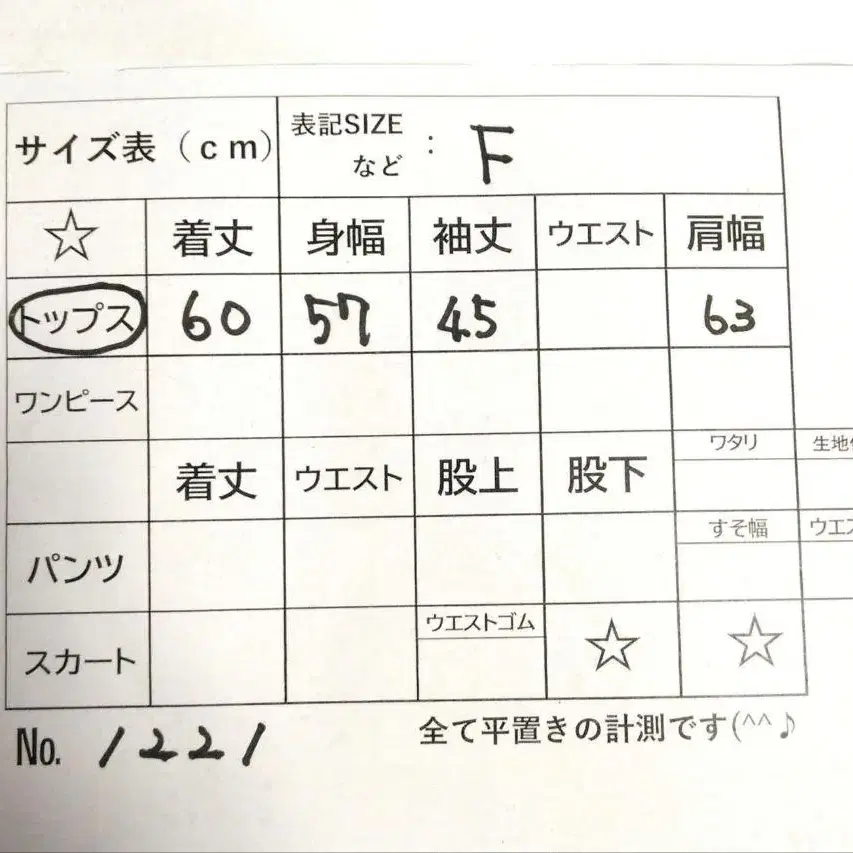 サイズ表（ｃｍ） 表記SIZE など : F
☆ 着丈 身幅 袖丈 ウエスト 肩幅
トップス 60 57 45 63
ワンピース
着丈 ウエスト 股上 股下 ワタリ 生地
パンツ すそ幅 ウエス
スカート ウエストゴム ☆ ☆
No. 1221 全て平置きの計測です(^^♪